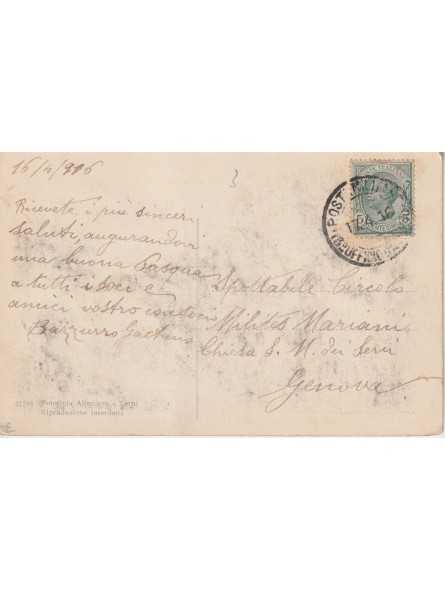 16/4/916
3
Ricevete i più sinceri
saluti, augurandovi
una buona Pasqua
a tutti i soci e
amici vostro
Gaetano
Spettabile Circolo
Milites Mariani
Chiesa S. M. dei Servi
Genova
POSTA MILITARE
17.4.16
Riproduzione interdetta